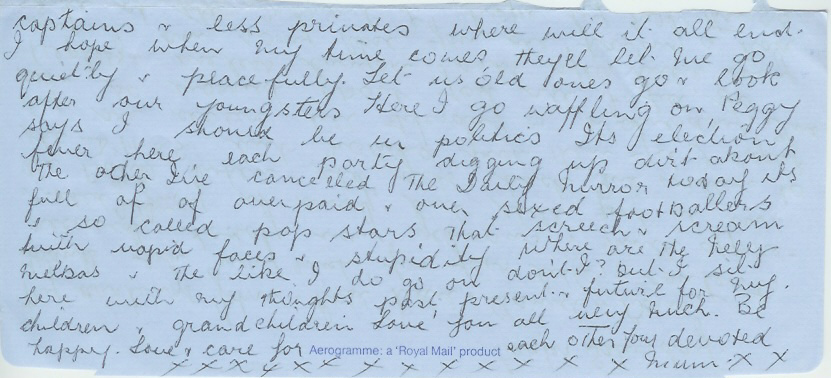 captains & less privates where will it all end.
I hope when my time comes theyll let me go
quietly & peacefully. Let us old ones go & look
after our youngsters Here I go waffling on, Peggy
says I should be in politics Its election
fever here each party digging up dirt about
the other Ive cancelled The Daily Mirror today its
full of of overpaid & over sexed footballers
& so called pop stars that screech & scream
with vapid faces & stupidity Where are the Nelly
Melbas & the like I do go on don't I? but I sit
here with my thoughts past present & future for my.
children & grandchildren Love you all very much. Be
happy. Love & care for each other Your devoted
Aerogramme: a 'Royal Mail' product
x x x x x x x x x x x x x Mum x x